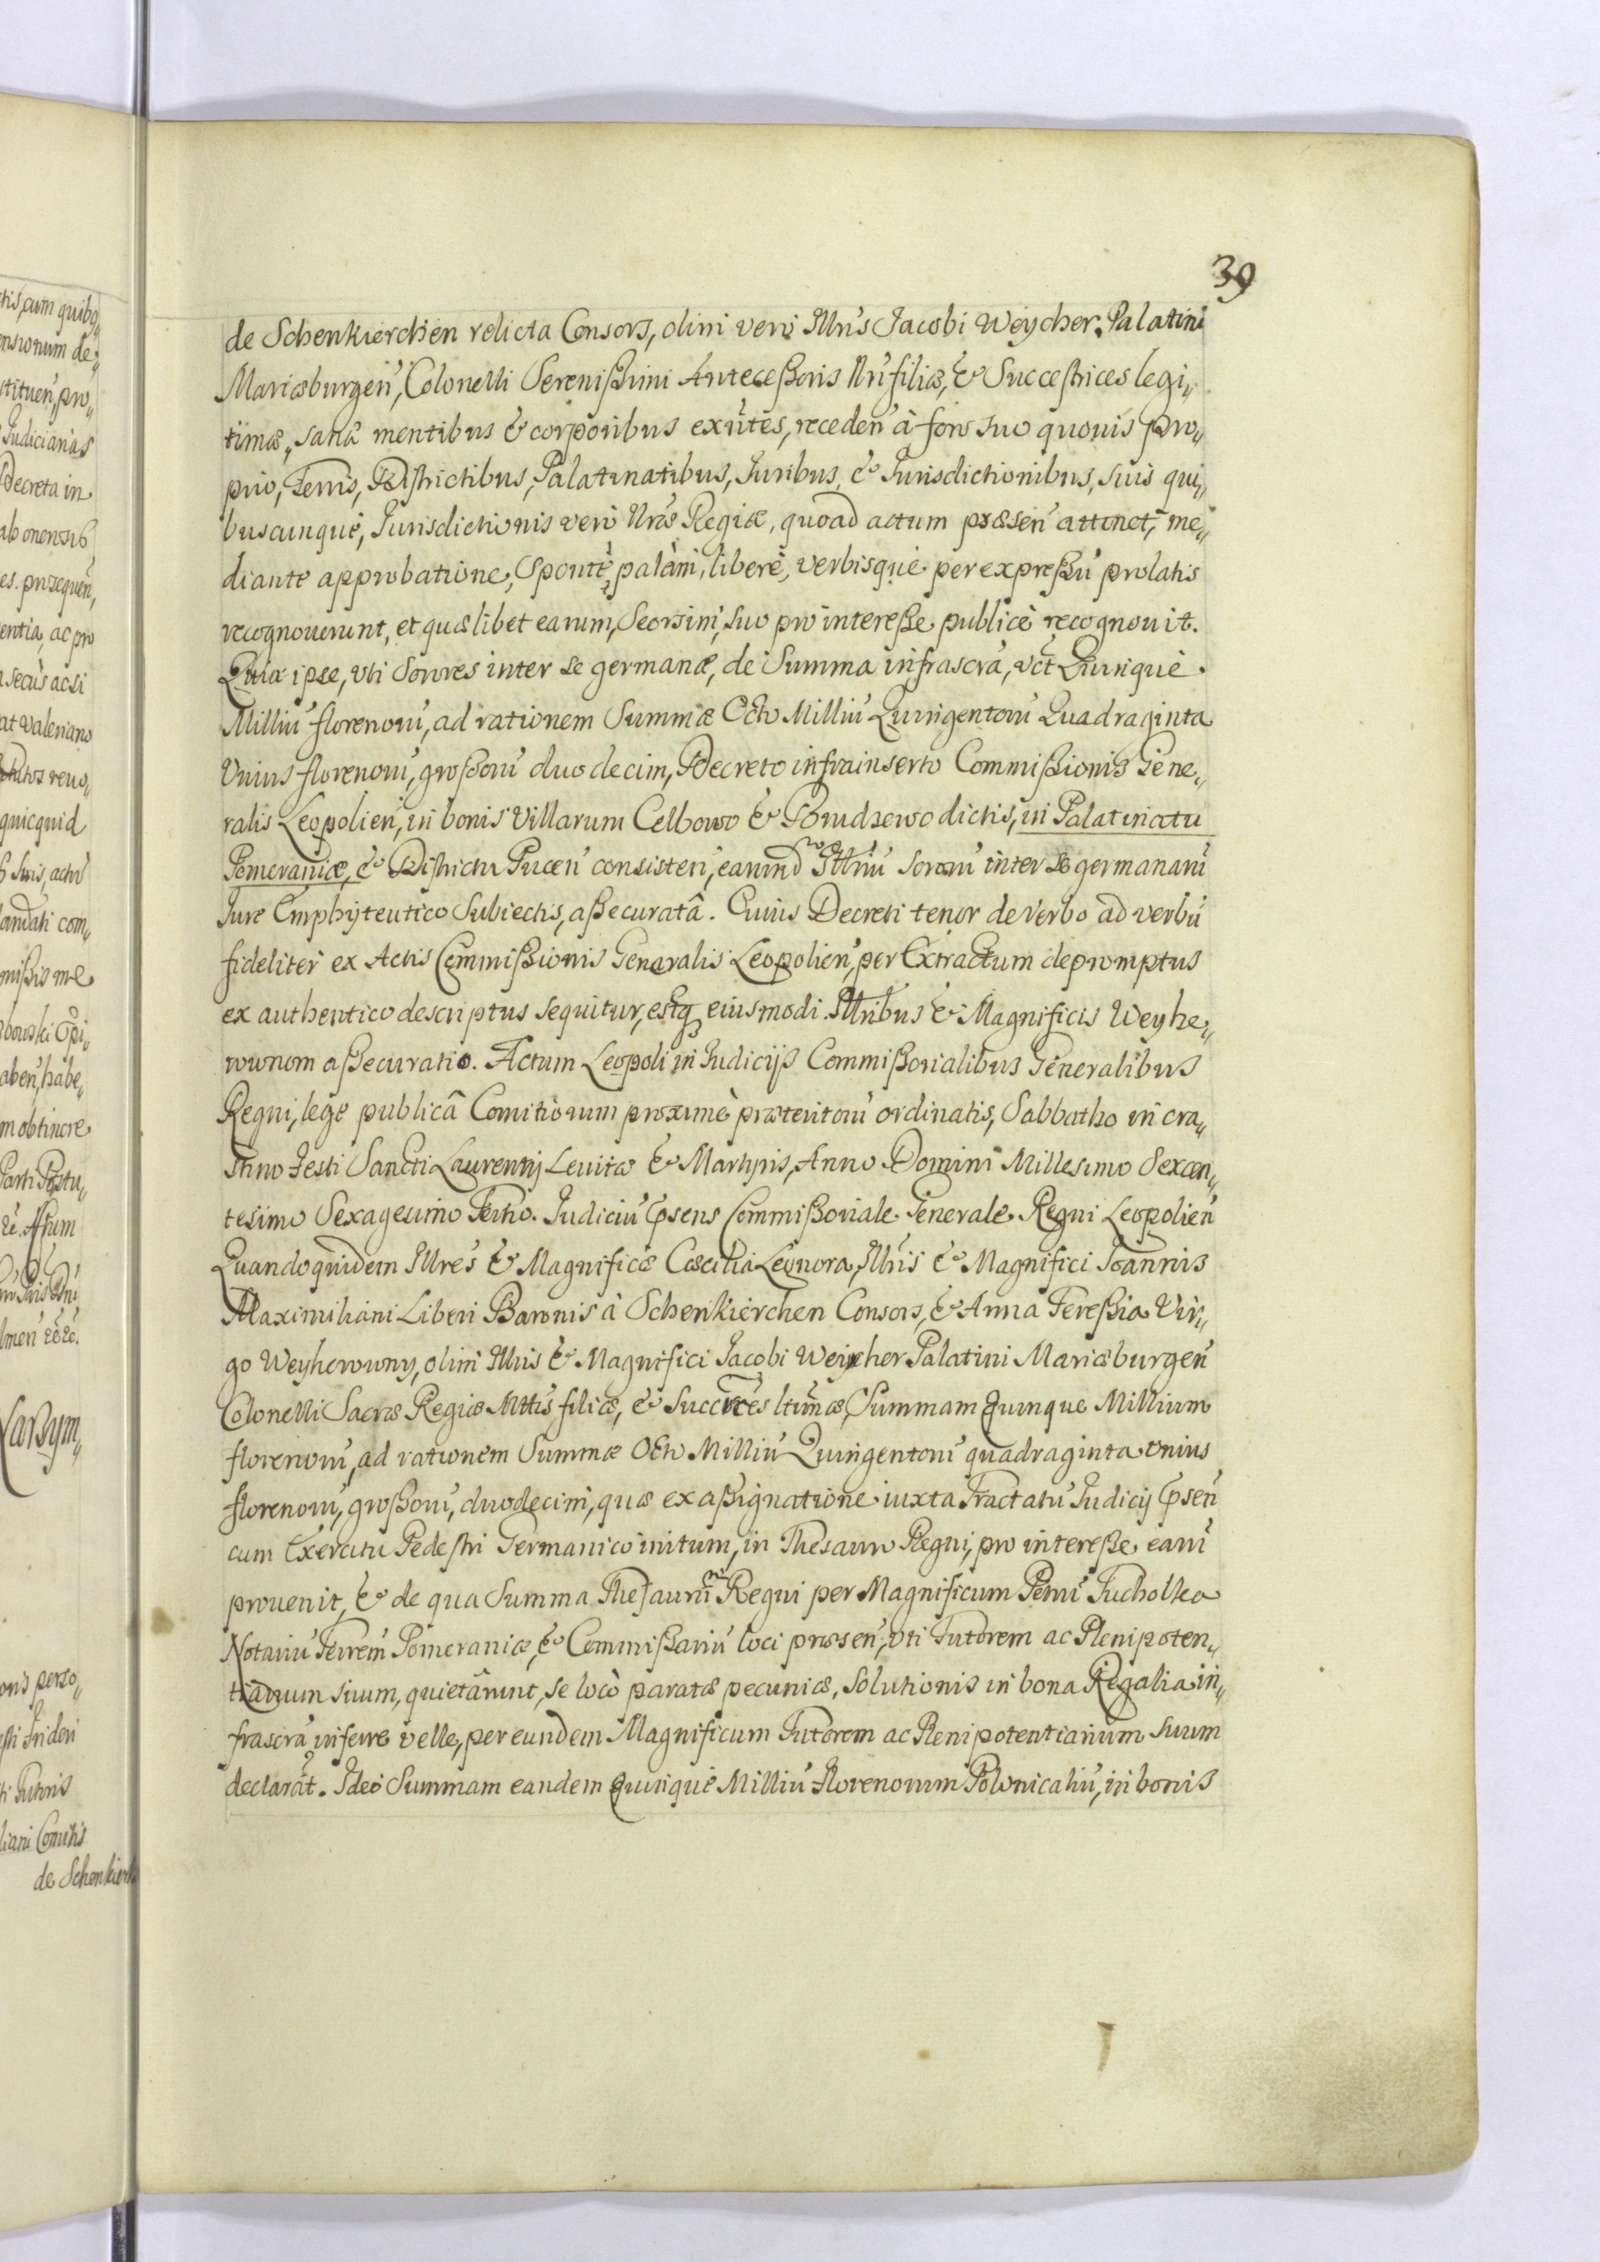 39
de Schenkierchen relicta Consors, olim verò Illris Jacobi Weycher, Palatini
Mariæburgeñ, Colonelli Serenissimi Antecessoris Nri filiæ, & Succestrices legi„
timæ, sanâ mentibus & corporibus exñtes, recedeñ à foro suo quouis pro„
prio, Terris, Districtibus, Palatinatibus, Juribus, & Jurisdictionibus, suis qui„
buscunquè, Jurisdictionis verò Nræ Regiæ, quoad actum præseñ attinet, me„
diante approbatione, Spontè, palàm, liberè, verbisquè per expressũ prolatis
recognouerunt, et quælibet earum, Seorsim, suo pro interesse publicè recognouit.
Quia ipsæ, vti Sorores inter se germanæ, de Summa infrascra, vct Quinquè
Milliũ florenorũ, ad rationem Summæ Octo Milliũ Quingentorũ Quadraginta
Vnius florenorũ, grossorũ duodecim, Decreto infrainserto Commissionis Gene„
ralis Leopolieñ, in bonis Villarum Celbowo & Brudzewo dictis, in Palatinatu
Pomeraniæ, & Districtu Puceñ consisteñ, earund Illriũ Sororũ inter se germanarũ
Jure Emphyteutico Subiectis, assecuratâ. Cuius Decreti tenor de verbo ad verbũ
fideliter ex Actis Commissionis Generalis Leopolieñ, per Extractum depromptus
ex authentico descriptus sequitur, estq eiusmodi. Illribus & Magnificis Weyhe„
rownom assecuratio. Actum Leopoli in Judicijs Commissorialibus Generalibus
Regni, lege publicâ Comitiorum proximè præteritorũ ordinatis, Sabbatho in cra„
stino Festi Sancti Laurentij Leuitæ & Martyris, Anno Domini Millesimo Sexcen„
tesimo Sexagesimo Tertio. Judiciũ Psens Commissoriale Generale Regni Leopolieñ
Quandoquidem Illres & Magnificæ Cæcilia Leonora, Illris & Magnifici Joannis
Maximiliani Liberi Baronis à Schenkierchen Consors, & Anna Teressia Vir„
go Weyherowny, olim Illris & Magnifici Jacobi Weiyher Palatini Mariæburgeñ
Colonelli Sacræ Regiæ Mttis filiæ, & Succrices ltimæ, Summam Quinque Millium
florenorũ, ad rationem Summæ Octo Milliũ Quingentorũ quadraginta vnius
florenorũ, grossorũ, duodecim, quæ ex assignatione iuxta Tractatũ Judicij Pseñ
cum Exercitu Pedestri Germanico initum, in Thesauro Regni, pro interesse earũ
prouenit, & de qua Summa Thesaurũ Regni per Magnificum Petrũ Tucholka
Notariũ Terreñ Pomeraniæ, & Commissariũ loci præseñ, vti Tutorem ac Plenipoten„
tiarium suum, quietârunt, se locò paratæ pecuniæ, solutionis in bona Regalia in„
frascra inferre velle, per eundem Magnificum Tutorem ac Plenipotentiarium suum
declarât. Ideò Summam eandem Quinquè Milliũ Florenorum Polonicaliũ, in bonis